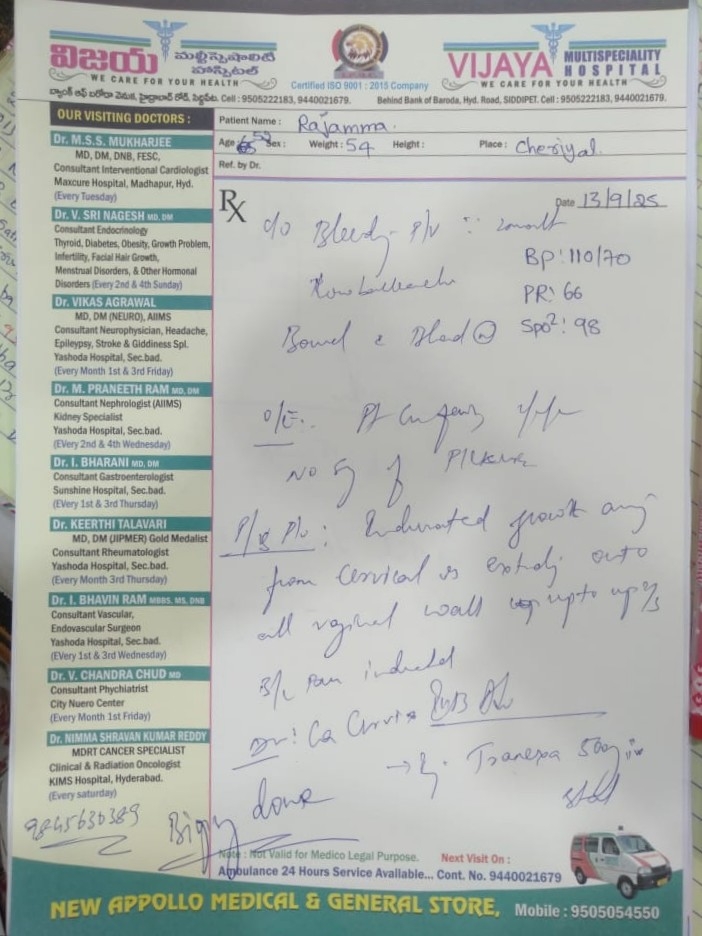 విజయ మల్టీస్పెషాలిటీ హాస్పిటల్
WE CARE FOR YOUR HEALTH
Certified ISO 9001 : 2015 Company
VIJAYA MULTISPECIALITY HOSPITAL
WE CARE FOR YOUR HEALTH
బ్యాంక్ ఆఫ్ బరోడా వెనుక, హైద్రాబాద్ రోడ్, సిద్దిపేట. Cell : 9505222183, 9440021679.
Behind Bank of Baroda, Hyd. Road, SIDDIPET. Cell : 9505222183, 9440021679.
OUR VISITING DOCTORS :
Dr. M.S.S. MUKHARJEE
MD, DM, DNB, FESC,
Consultant Interventional Cardiologist
Maxcure Hospital, Madhapur, Hyd.
(Every Tuesday)
Dr. V. SRI NAGESH MD, DM
Consultant Endocrinology
Thyroid, Diabetes, Obesity, Growth Problem,
Infertility, Facial Hair Growth,
Menstrual Disorders, & Other Hormonal
Disorders (Every 2nd & 4th Sunday)
Dr. VIKAS AGRAWAL
MD, DM (NEURO), AIIMS
Consultant Neurophysician, Headache,
Epileypsy, Stroke & Giddiness Spl.
Yashoda Hospital, Sec.bad.
(Every Month 1st & 3rd Friday)
Dr. M. PRANEETH RAM MD, DM
Consultant Nephrologist (AIIMS)
Kidney Specialist
Yashoda Hospital, Sec.bad.
(EVery 2nd & 4th Wednesday)
Dr. I. BHARANI MD, DM
Consultant Gastroenterologist
Sunshine Hospital, Sec.bad.
(EVery 1st & 3rd Thursday)
Dr. KEERTHI TALAVARI
MD, DM (JIPMER) Gold Medalist
Consultant Rheumatologist
Yashoda Hospital, Sec.bad.
(Every Month 3rd Thursday)
Dr. I. BHAVIN RAM MBBS, MS, DNB
Consultant Vascular,
Endovascular Surgeon
Yashoda Hospital, Sec.bad.
(EVery 1st & 3rd Wednesday)
Dr. V. CHANDRA CHUD MD
Consultant Phychiatrist
City Nuero Center
(Every Month 1st Friday)
Dr. NIMMA SHRAVAN KUMAR REDDY
MDRT CANCER SPECIALIST
Clinical & Radiation Oncologist
KIMS Hospital, Hyderabad.
(Every saturday)
9845630389
Patient Name : Rajamma.
Age Sex : Weight : 54 Height : Place : Cheriyal.
Ref. by Dr.
Rx
Date 13/9/25
c/o Bleedg P/V
BP: 110/70
PR: 66
Bowel & Blad N
Spo2: 98
O/E:
No of
P/V: Indurated growth
from cervical extendg onto
all vaginal wall upto up
B/L Para
Ca Cervix
Tranexa 500
done
stat
Note : Not Valid for Medico Legal Purpose. Next Visit On :
Ambulance 24 Hours Service Available... Cont. No. 9440021679
NEW APPOLLO MEDICAL & GENERAL STORE, Mobile : 9505054550